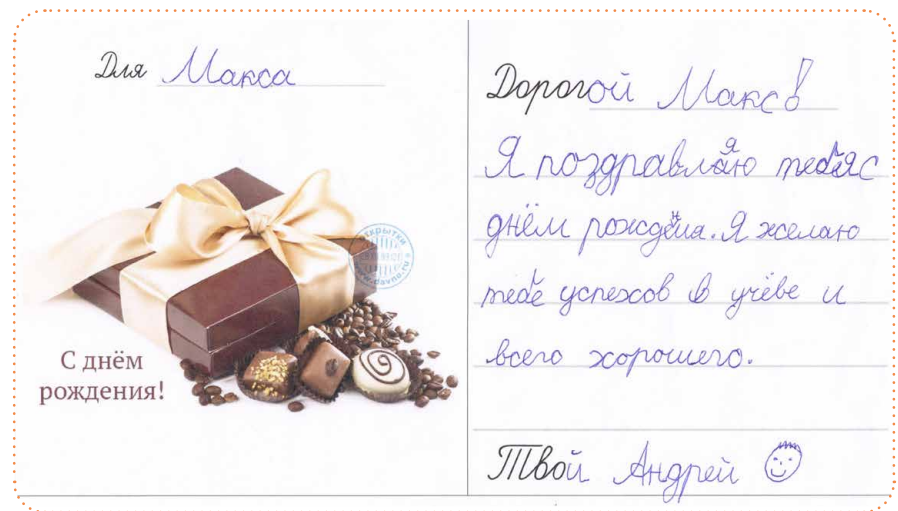 Для Макса
ОТКРЫТКИ
www.davno.ru
С днём
рождения!
Дорогой Макс!
Я поздравляю тебя с
днём рождения. Я желаю
тебе успехов в учёве и
всего хорошего.
Твой Андрей